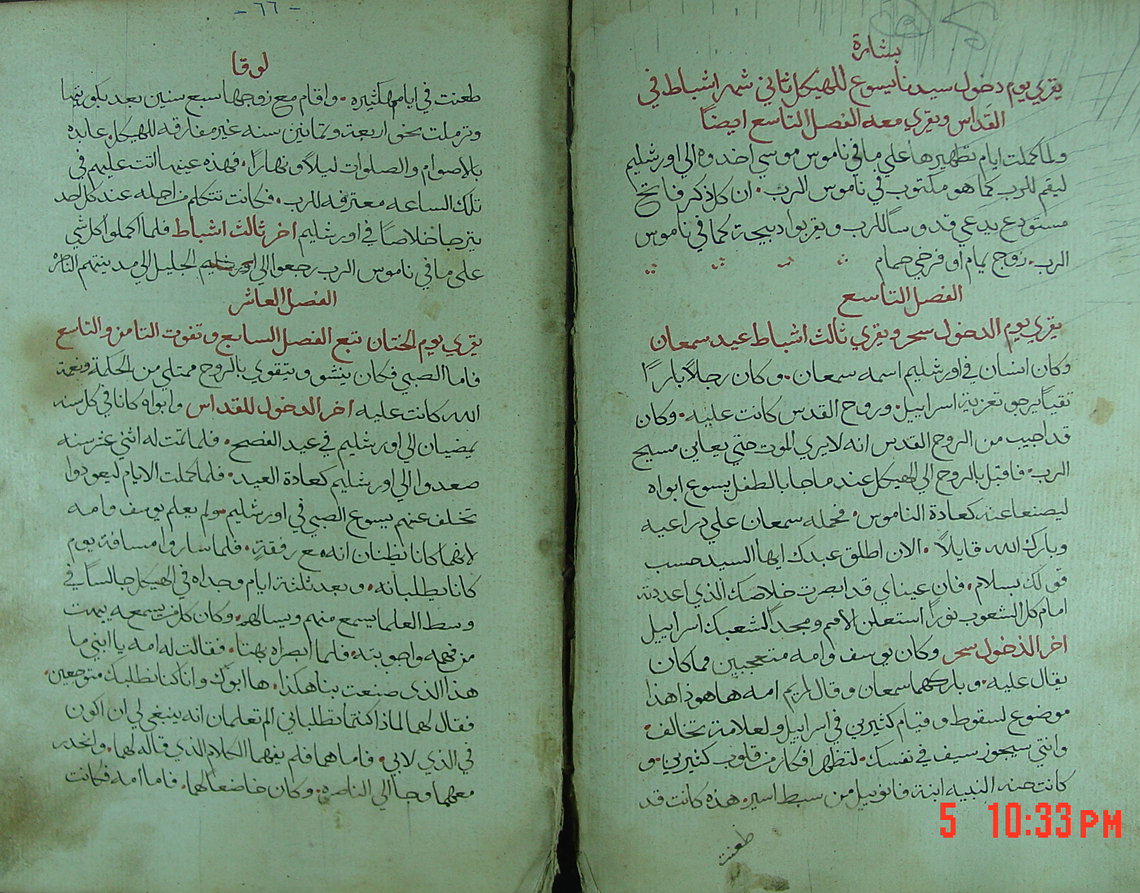 بشارة
يقري يوم دخول سيدنا يسوع للهيكل ثاني شهر اشباط في
القداس ويقري معه الفصل التاسع ايضاً
ولما كملت ايام تطهيرها علي ما في ناموس موسي اخدوه الي اورشليم
ليقم للرب كما هو مكتوب في ناموس الرب. ان كل ذكر فاتح
مستودع يدعي قدوساً للرب ويقربوا دبيحة كما في ناموس
الرب. زوج يمام او فرخي حمام
الفصل التاسع
يقري يوم الدخول سحر ويقري ثالث اشباط عيد سمعان
وكان انسان في اورشليم اسمه سمعان. وكان رجلاً باراً
تقياً يرجو تعزية اسراييل. وروح القدس كانت عليه. وكان
قد اجيب من الروح القدس انه لا يري الموت حتي يعاين مسيح
الرب. فاقبل بالروح الي الهيكل عند ما جابا الطفل يسوع ابواه
ليصنعا عنه كعادة الناموس. فحمله سمعان علي دراعيه
وبارك الله قايلاً. الان اطلق عبدك ايها السيد حسب
قولك بسلام. فان عيناي قد ابصرت خلاصك الذي اعددته
امام كل الشعوب نوراً استعلن للامم ومجداً لشعبك اسراييل
اخر الدخول سحر وكان يوسف وامه متعجبين مما كان
يقال عليه. وباركهما سمعان وقال لمريم امه ها هوذا هذا
موضوع لسقوط وقيام كثيرين في اسراييل ولعلامة تخالف.
وانتي سيجوز سيف في نفسك. لتظهر افكار من قلوب كثيرين. و
كانت حنه النبيه ابنة فانوييل من سبط اسير. هذه كانت قد
طعنت
5 10:33 PM
- ٦٦ -
لوقا
طعنت في ايامها كثيره. واقام مع زوجها سبع سنين بعد بكوريتها
وترملت بحق اربعة وثمانين سنه غير مفارقه للهيكل عابده
بالاصوام والصلوات ليلاً ونهاراً. فهذه عينها اتت عليهم في
تلك الساعه معترفه للرب. فكانت تتكلم من اجله عند كل احد
يترجا خلاصاً في اورشليم اخر ثالث اشباط فلما اكملوا كل شي
علي ما في ناموس الرب رجعوا الي الجليل الي مدينتهم الناصره
الفصل العاشر
يقري يوم الختان تبع الفصل السابع وتفوت الثامن والتاسع
فاما الصبي فكان ينشو ويتقوي بالروح ممتلي من الحكمة ونعمة
الله كانت عليه اخر الدخول للقداس وابواه كانا في كل سنه
يمضيان الي اورشليم في عيد الفصح. فلما تمت له اثني عشر سنه
صعدوا الي اورشليم كعادة العيد. فلما كملت الايام ليعودوا
تخلف عنهم يسوع الصبي في اورشليم. ولم يعلم يوسف وامه
لانهما كانا يظنان انه مع رفقة. فلما ساروا مسافة يوم
كانا يطلبانه. وبعد ثلثة ايام وجداه في الهيكل جالساً في
وسط العلما يسمع منهم ويسالهم. وكان كل من يسمعه يبهت
من فهمه واجوبته. فلما ابصراه بهتا. فقالت له امه يا ابني ما
هذا الذي صنعت بنا هكذا. ها ابوك وانا كنا نطلبك متوجعين.
فقال لهما لماذا كنتما تطلباني الم تعلمان انه ينبغي لي ان اكون
في الذي لابي. فاما هما فلم يفهما الكلام الذي قاله لهما. وانحدر
معهما وجا الي الناصره. وكان خاضعاً لهما. فاما امه فكانت